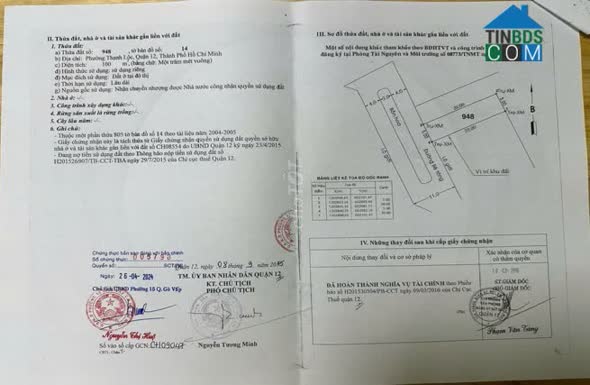 TINBDS
COM
II. Thửa đất, nhà ở và tài sản khác gắn liền với đất
1. Thửa đất:
a) Thửa đất số: 948, tờ bản đồ số: 14
b) Địa chỉ: Phường Thạnh Lộc, Quận 12, Thành Phố Hồ Chí Minh
c) Diện tích: 100 m², (bằng chữ: Một trăm mét vuông)
d) Hình thức sử dụng: sử dụng riêng
đ) Mục đích sử dụng: Đất ở tại đô thị
e) Thời hạn sử dụng: Lâu dài
g) Nguồn gốc sử dụng: Nhận chuyển nhượng được Nhà nước công nhận quyền sử dụng đất
2. Nhà ở:
3. Công trình xây dựng khác:
4. Rừng sản xuất là rừng trồng:
5. Cây lâu năm:
6. Ghi chú:
- Thuộc một phần thửa 805 tờ bản đồ số 14 theo tài liệu năm 2004-2005
- Giấy chứng nhận này là tách thửa từ Giấy chứng nhận quyền sử dụng đất quyền sở hữu
nhà ở và tài sản khác gắn liền với đất số CH08554 do UBND Quận 12 ký ngày 23/4/2015
- Đang nợ tiền sử dụng đất theo Thông báo nộp tiền sử dụng đất số
H201526907/TB-CCT-TBA ngày 29/7/2015 của Chi cục thuế Quận 12.
Chứng thực bản sao đúng với bản chính
Số chứng thực: 005793
Quyển số: SCT/BS
Ngày: 26-04-2024
Chủ tịch UBND Phường 10 Q. Gò Vấp
Nguyễn Thị Huệ
Quận 12, ngày 08 tháng 9 năm 2015
TM. ỦY BAN NHÂN DÂN QUẬN 12
KT. CHỦ TỊCH
PHÓ CHỦ TỊCH
Nguyễn Tương Minh
Số vào sổ cấp GCN: CH09047
III. Sơ đồ thửa đất, nhà ở và tài sản khác gắn liền với đất
948
B
Vị trí khu đất
Lộ giới
11.0
BẢNG LIỆT KÊ TỌA ĐỘ GÓC RANH
IV. Những thay đổi sau khi cấp giấy chứng nhận
Nội dung thay đổi và cơ sở pháp lý
Xác nhận của cơ quan
có thẩm quyền
ĐÃ HOÀN THÀNH NGHĨA VỤ TÀI CHÍNH theo Phiếu
báo số H201530504/PB-CCT ngày 09/03/2016 của Chi Cục
Thuế quận 12.
KT.GIÁM ĐỐC
PHÓ GIÁM ĐỐC
Phạm Văn Tăng